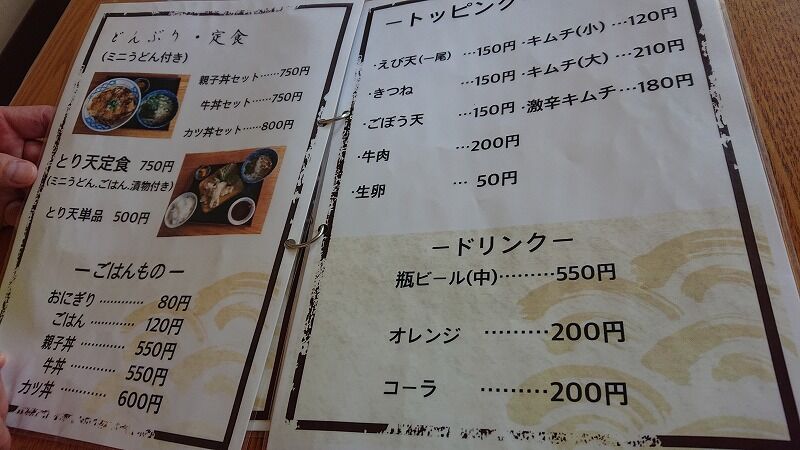 どんぶり・定食
(ミニうどん付き)
親子丼セット……750円
牛丼セット……750円
カツ丼セット……800円
とり天定食 750円
(ミニうどん、ごはん、漬物付き)
とり天単品 500円
ーごはんものー
おにぎり………… 80円
ごはん………… 120円
親子丼………… 550円
牛丼………… 550円
カツ丼………… 600円
ートッピング
・えび天(一尾) …150円
・きつね …150円
・ごぼう天 …150円
・牛肉 …200円
・生卵 … 50円
・キムチ(小) …120円
・キムチ(大) …210円
・激辛キムチ…180円
ードリンクー
瓶ビール(中)………550円
オレンジ ………200円
コーラ ………200円